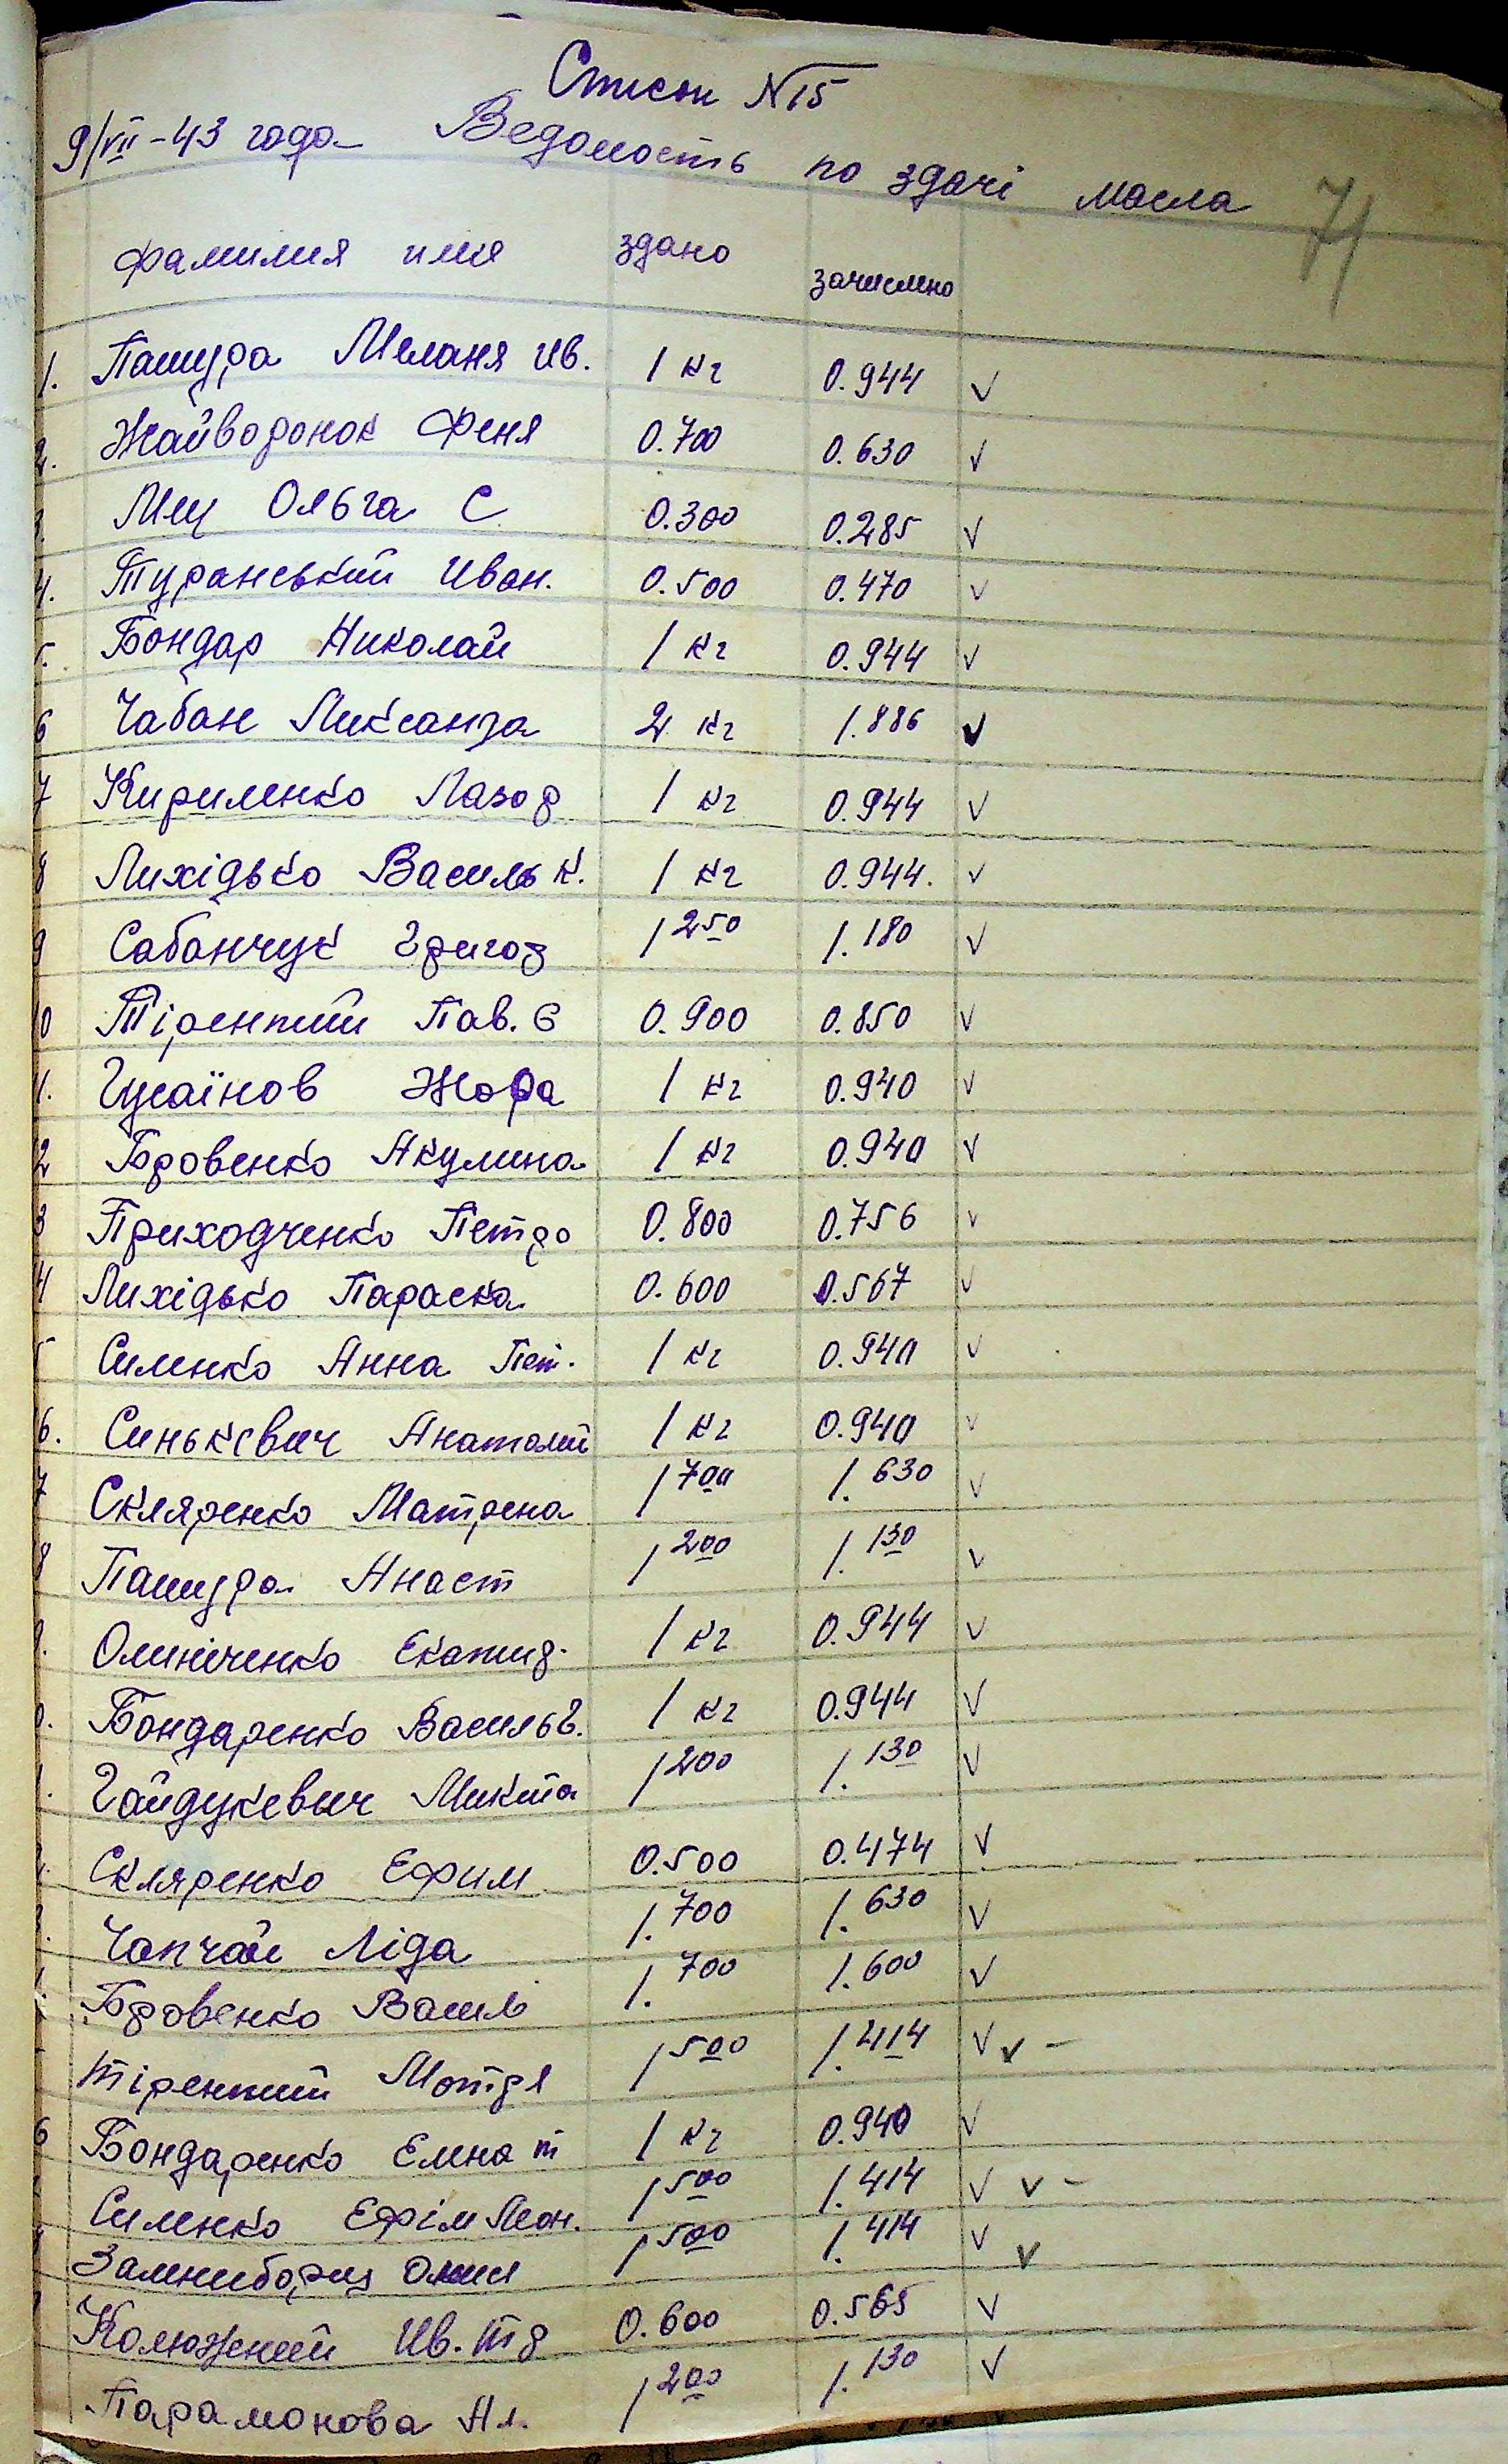 Список №15
9/VII-43 года Ведомость по здачі масла 71
фамилия имя здано зачислено
1. Пашура Меланя Ив. 1 кг 0.944 √
2. Жайворонок Феня 0.700 0.630 √
Мец Ольга С 0.300 0.285 √
4. Туранський Иван. 0.500 0.470 √
5. Бондар Николай 1 кг 0.944 √
6 Чабан Ликсанра 2 кг 1.886 √
7 Кириленко Лазор 1 кг 0.944 √
8 Лихідько Василь К. 1 кг 0.944. √
9 Сабанчук Григор 1 250 1.180 √
0 Тірентий Пав. Є 0.900 0.850 √
1. Гусаїнов Жора 1 кг 0.940 √
2 Бровенко Акулина 1 кг 0.940 √
3 Приходченко Петро 0.800 0.756 √
4 Лихідько Параска 0.600 0.567 √
5 Силенко Анна Пет. 1 кг 0.940 √
6. Синькевич Анатолий 1 кг 0.940 √
7 Скляренко Матрена 1 700 1.630 √
8 Пашура Анаст 1 200 1.130 √
9. Олиніченко Екатир. 1 кг 0.944 √
0. Бондаренко Василь Г. 1 кг 0.944 √
1. Гайдукевич Микита 1 200 1.130 √
2. Скляренко Ефим 0.500 0.474 √
Чапчай Ліда 1.700 1.630 √
Бровенко Василь 1.700 1.600 √
Тірентий Мотря 1 500 1.414 √ √ –
6 Бондаренко Елена т 1 кг 0.940 √
Силенко Ефім Леон. 1 500 1.414 √ √ –
1 500 1.414 √ √
Калюжний Ив. Тр 0.600 0.565 √
Парамонова Ал. 1 200 1.130 √